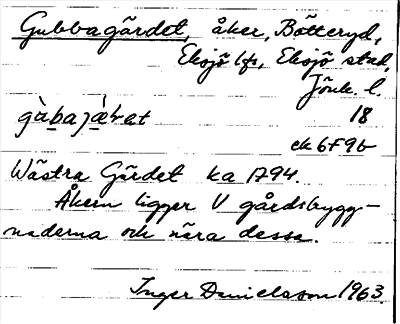 Gubbagärdet, åker, Bötteryd,
Eksjö lfs, Eksjö stad,
Jönk. l.
18
ek 6F9b
Wästra Gärdet ka 1794.
Åkern ligger V gårdsbygg-
naderna och nära dessa.
Inger Danielsson 1963.